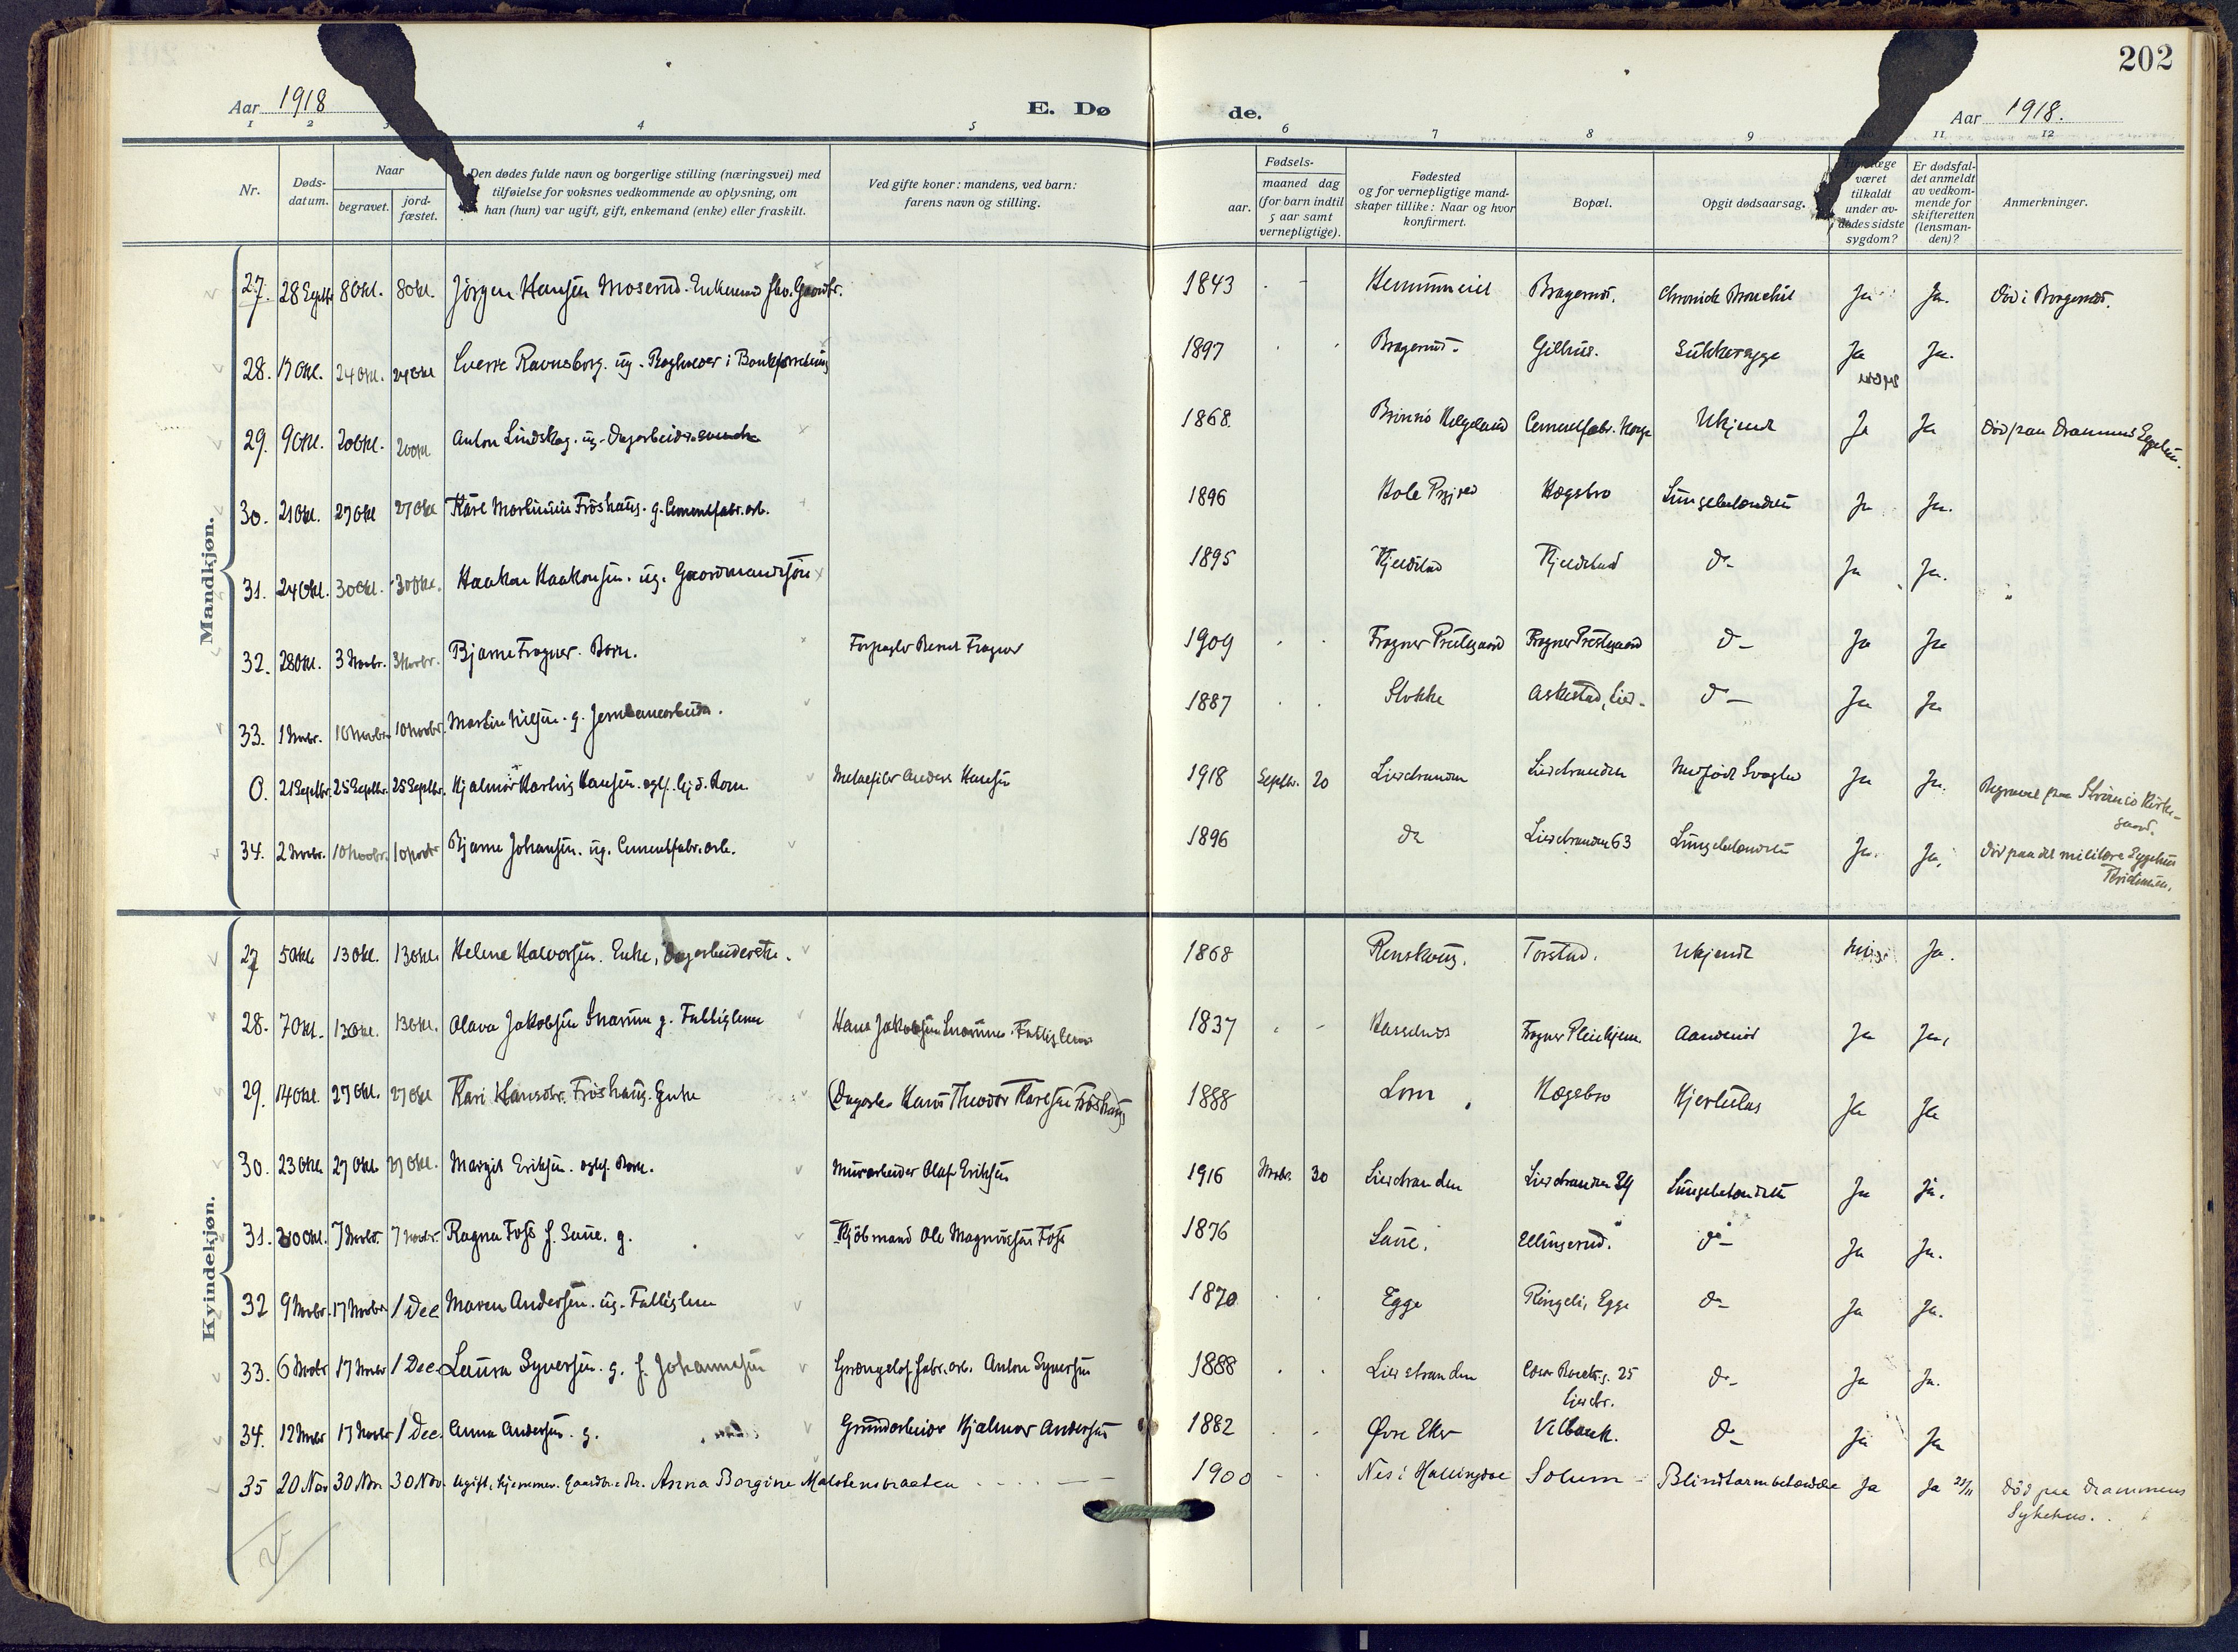 202
Aar 1918
E. Dø
de.
Aar 1918.
1 2 3 4 5 6 7 8 9 11 12
Nr.
Døds-
datum.
Naar
begravet.
jord-
fæstet.
Den dødes fulde navn og borgerlige stilling (næringsvei) med
tilføielse for voksnes vedkommende av oplysning, om
han (hun) var ugift, gift, enkemand (enke) eller fraskilt.
Ved gifte koner: mandens, ved barn:
farens navn og stilling.
Fødsels-
aar.
maaned dag
(for barn indtil
5 aar samt
vernepligtige).
Fødested
og for vernepligtige mand-
skaper tillike: Naar og hvor
konfirmert.
Bopæl.
Opgit dødsaarsag.
været
tilkaldt
under av-
dødes sidste
sygdom?
Er dødsfal-
det anmeldt
av vedkom-
mende for
skifteretten
(lensman-
den)?
Anmerkninger.
Mandkjøn.
27. 28 Septbr. 8 Okt. 8 Okt. Jörgen Hansen Moserud. Enkemand 1843 Bragernes. Chronisk Bronchit Ja Ja. Död i Bragernes.
28. 24 Okt. 24 Okt Sverre Ravnsborg. ug. 1897 Bragernes. Gilhus. Sukkersyge Ja Ja.
29. 9 Okt. 20 Okt. 20 Okt Anton Lindskog. ug. 1868. Cementfabr. Norge Ukjendt Ja Ja Død paa Drammens Sygehus.
30. 21 Okt. 27 Okt 27 Okt Kåre Martinius Fröshaug. g. Cementfabr. arb. 1896 Hole Hægsbro Lungebetændelse Ja Ja.
31. 24 Okt. 30 Okt. 30 Okt. Haakon Haakonsen. ug. Gaardmandssön 1895 Kjeldstad Kjeldstad do Ja Ja.
32. 28 Okt. 3 Novbr. 3 Novbr. Bjarne Fragner. Barn. Forpagter Bernt Fragner 1909 Fragner Prestegaard Fragner Prestegaard do Ja Ja
33. 1 Novbr. 10 Novbr. 10 Novbr. Martin Nilsen. g. Jernbanearbeider. 1887 Stokke Askestad, Lier. do Ja Ja
0. 21 Septbr. 25 Septbr. 25 Septbr. Hjalmar Hartvig Hansen. Anders Hansen 1918 Septbr. 20 Lierstranden Lierstranden Medfödt Svaghed Ja Ja. Begravet paa Strömsö Kirke-
gaard.
34. 2 Novbr. 10 Novbr. 10 Novbr Bjarne Johansen. ug. Cementfabr. arb. 1896 do Lierstranden 63 Lungebetændelse Ja. Ja. Död paa det militære Sygehus
Kvindekjøn.
27 5 Okt. 13 Okt. 13 Okt. Helene Halvorsen. Enke, Dagarbeiderske. 1868 Renskaug. Torstad. Ukjendt Nei Ja.
28. 7 Okt. 13 Okt. 13 Okt. Olava Jakobsen Snarum g. Fattiglem Hans Jakobsen Snarum. Fattiglem 1837 Hasselnes Fragner Pleiehjem. Aandenöd Ja Ja,
29. 14 Okt. 27 Okt. 27 Okt Kari Hansdtr. Fröshaug. Enke (Dagarb. Hans Theodor Karlsen Fröshaug) 1888 Lom Hægsbro Hjerteslag Ja Ja
30. 23 Okt 27 Okt. 27 Okt. Margit Eriksen. Barn. Murarbeider Olaf Eriksen 1916 Novbr. 30 Lierstranden Lierstranden 39 Lungebetændelse Ja Ja.
31. 30 Okt. 7 Novbr. 7 Novbr. Ragna Foss f. Saue. g. Kjöbmand Ole Magnussen Foss 1876 Saue. Ellingsrud. do Ja Ja.
32 9 Novbr. 17 Novbr. 1 Dec Maren Andersen. ug. Fattiglem 1870 Egge Ringeli, Egge do Ja Ja.
33. 6 Novbr 17 Novbr 1 Dec. Laura Syversen. g. f. Johannesen fabr. arb. Anton Syversen 1888 Lierstranden 25
Lierstr. do Ja Ja.
34. 12 Novbr 17 Novbr 1 Dec. Anna Andersen. g. Grundarbeider Hjalmar Andersen 1882 Øvre Eker Vilbaek. do Ja Ja
35 20 Nov 30 Nov 30 Nov. Ugift, hjemmev. Gaardbr.dtr. Anna Borgine Malstensbraaten 1900 Nes i Hallingdal Solum Blindtarmbetændelse Ja Ja 23/11 Død paa Drammens
Sykehus.